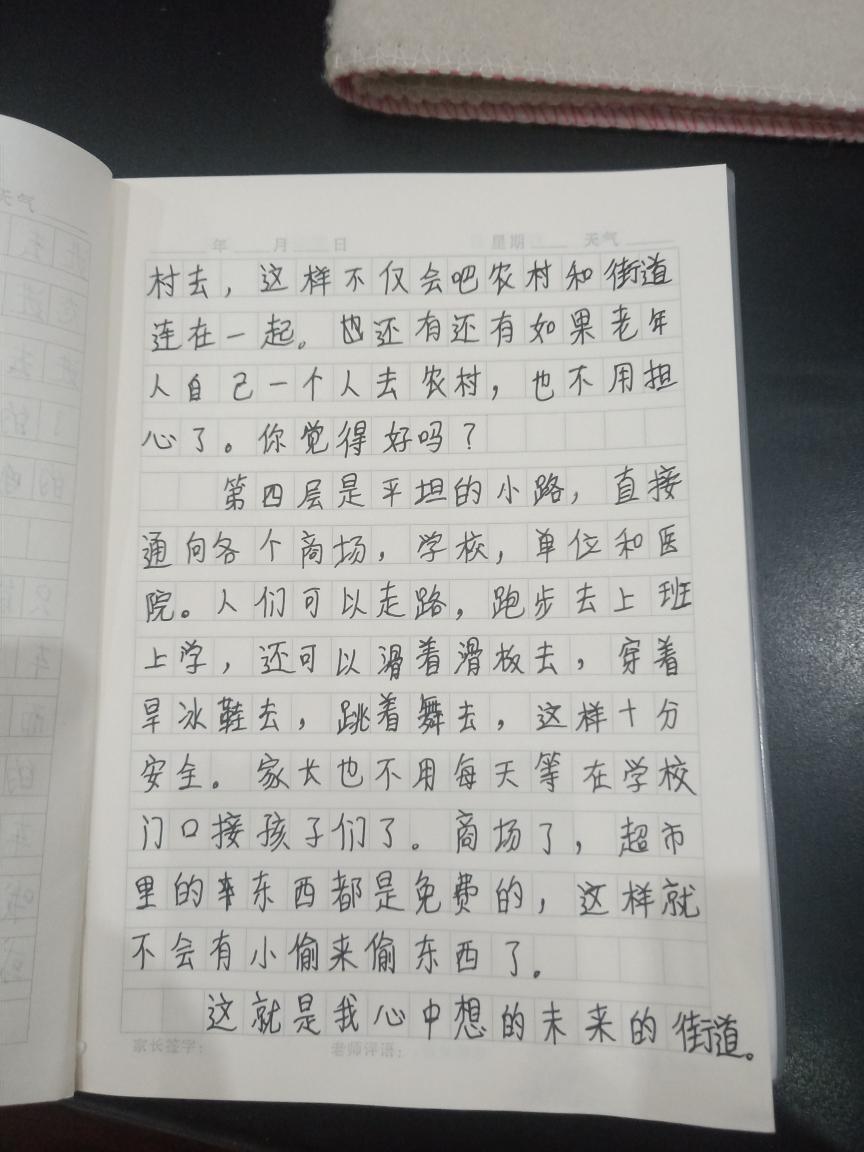 天气
年 月 日 星期 天气
村去，这样不仅会吧农村和街道
连在一起。也还有还有如果老年
人自己一个人去农村，也不用担
心了。你觉得好吗？
第四层是平坦的小路，直接
通向各个商场，学校，单位和医
院。人们可以走路，跑步去上班
上学，还可以滑着滑板去，穿着
旱冰鞋去，跳着舞去，这样十分
安全。家长也不用每天等在学校
门口接孩子们了。商场了，超市
里的东西都是免费的，这样就
不会有小偷来偷东西了。
这就是我心中想的未来的街道。
家长签字： 老师评语：